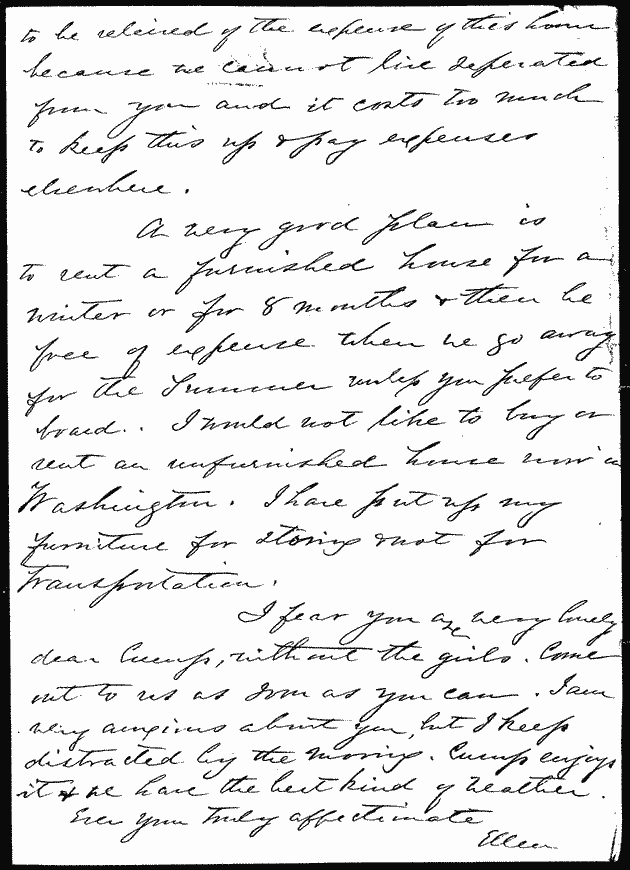 to be releived of the expense of this house
because we cannot live seperated
from you and it costs too much
to keep this up & pay expenses
elsewhere.
A very good plan is
to rent a furnished house for a
winter or for 8 months & then be
free of expense when we go away
for the Summer unless you prefer to
board.. I would not like to buy or
rent an unfurnished house now in
Washington. I have put up my
furniture for storing & not for
transportation.
I fear you are very lonely
dear Cump, without the girls. Come
out to us as soon as you can. I am
very anxious about you, but I keep
distracted by the moving. Cump enjoys
it & we have the best kind of weather.
Ever your truly affectionate
Ellen